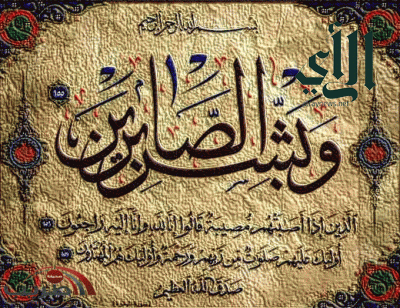 بسم الله الرحمن الرحيم
الرأي
وبشر الصابرين
١٥٥
الذين إذا أصبتهم مصيبة قالوا إنا لله وإنا إليه راجعون ١٥٦
أولئك عليهم صلوت من ربهم ورحمة وأولئك هم المهتدون ١٥٧
صدق الله العظيم